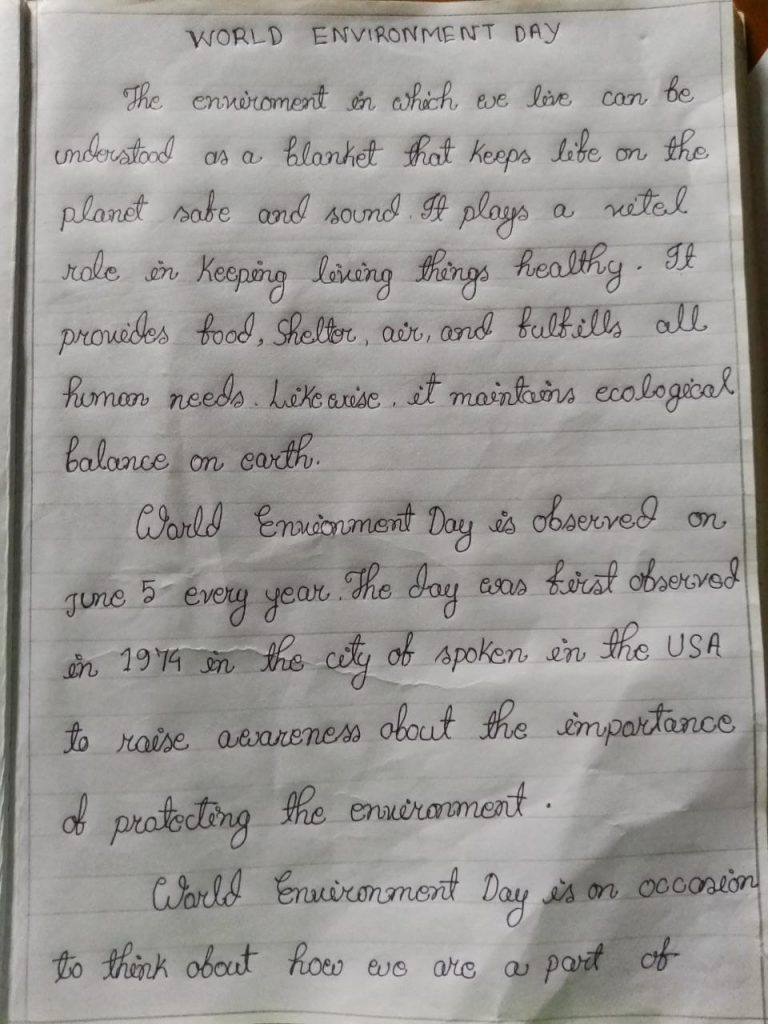 WORLD ENVIRONMENT DAY
The enviroment in which we live can be
understood as a blanket that keeps life on the
planet safe and sound. It plays a vital
role in keeping living things healthy. It
provides food, Shelter, air, and fulfills all
human needs. Likewise, it maintains ecological
balance on earth.
World Envionment Day is observed on
june 5 every year. The day was first observed
in 1974 in the city of spoken in the USA
to raise awareness about the importance
of protecting the environment.
World Environment Day is on occasion
to think about how we are a part of